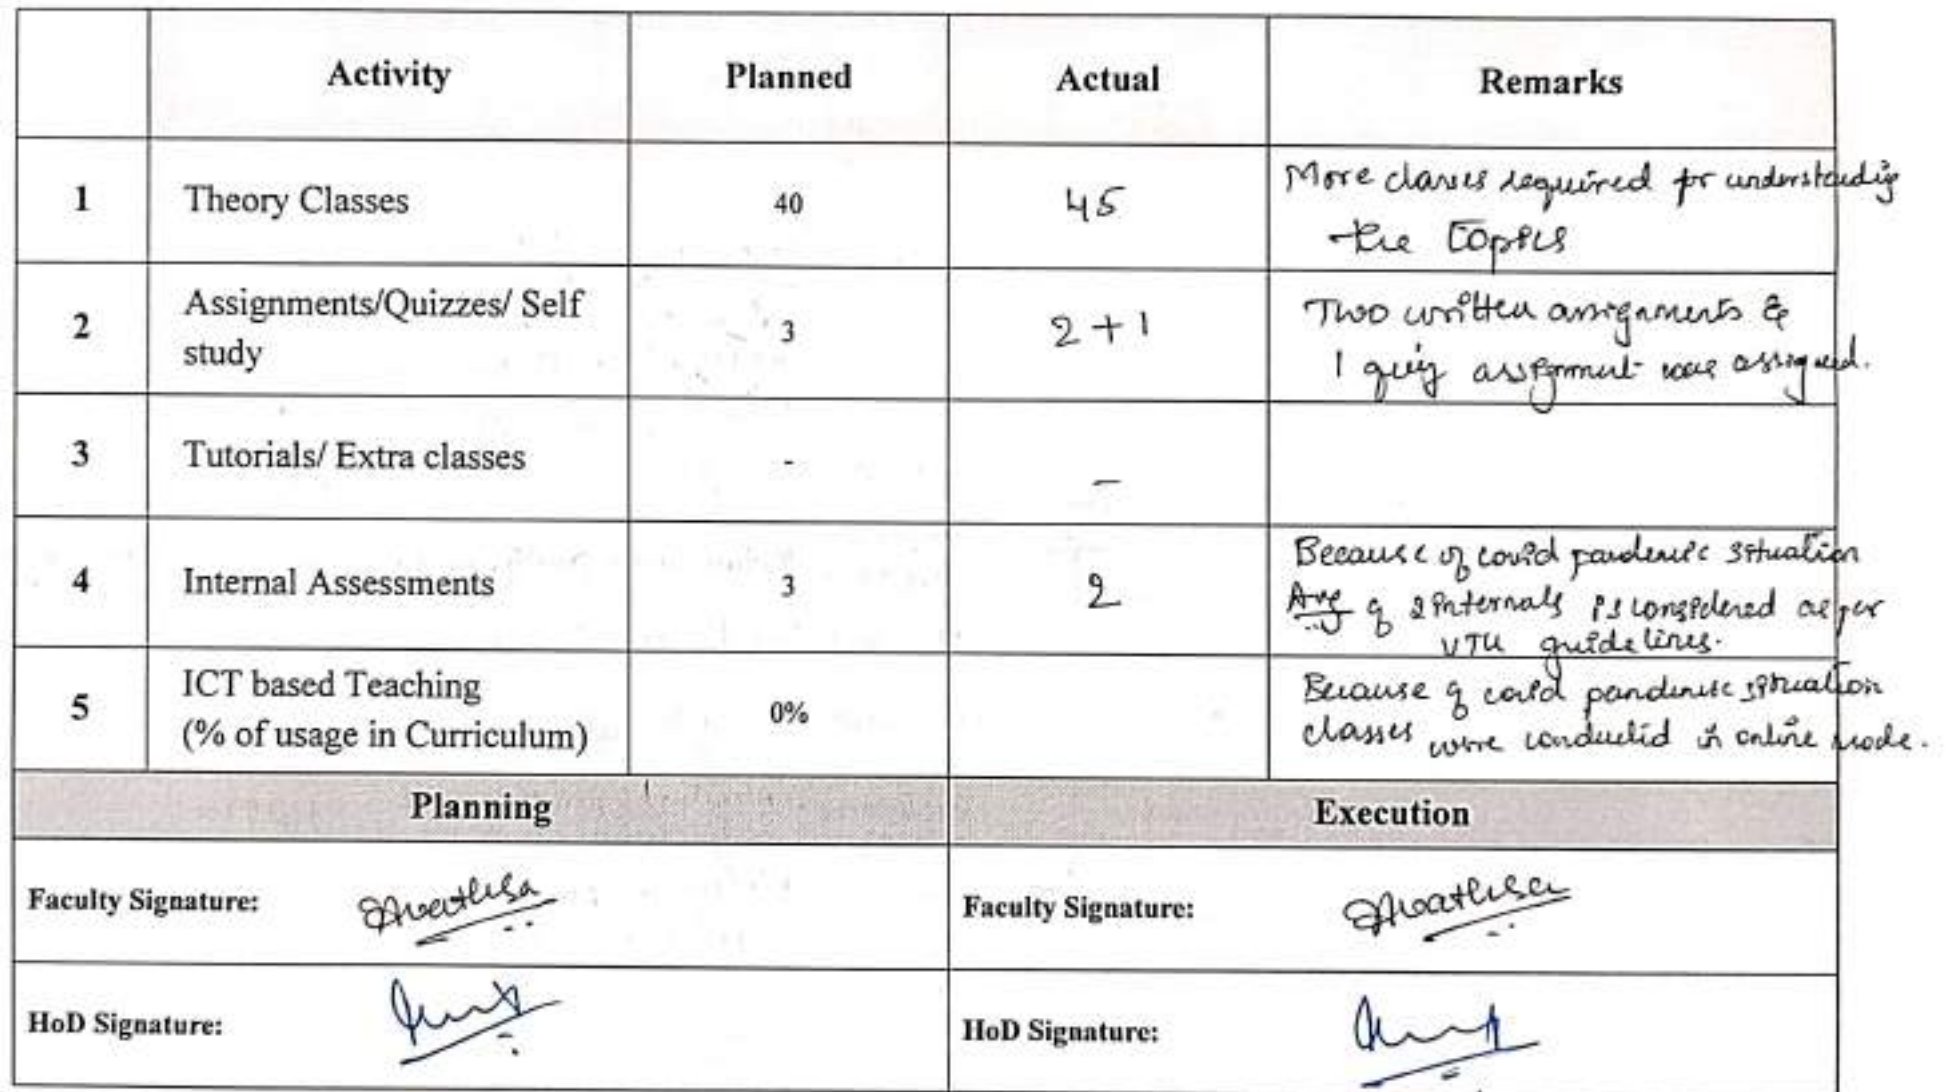 Activity Planned Actual Remarks
1 Theory Classes 40 45 More classes required for understanding
the Topics
2 Assignments/Quizzes/ Self
study 3 2+1 Two written assignments &
1 quiz assignment was assigned.
3 Tutorials/ Extra classes - -
4 Internal Assessments 3 2 Because of covid pandemic situation
Avg of 2 internals is considered as per
VTU guidelines.
5 ICT based Teaching
(% of usage in Curriculum) 0% Because of covid pandemic situation
classes were conducted in online mode.
Planning Execution
Faculty Signature: Faculty Signature:
HoD Signature: HoD Signature: